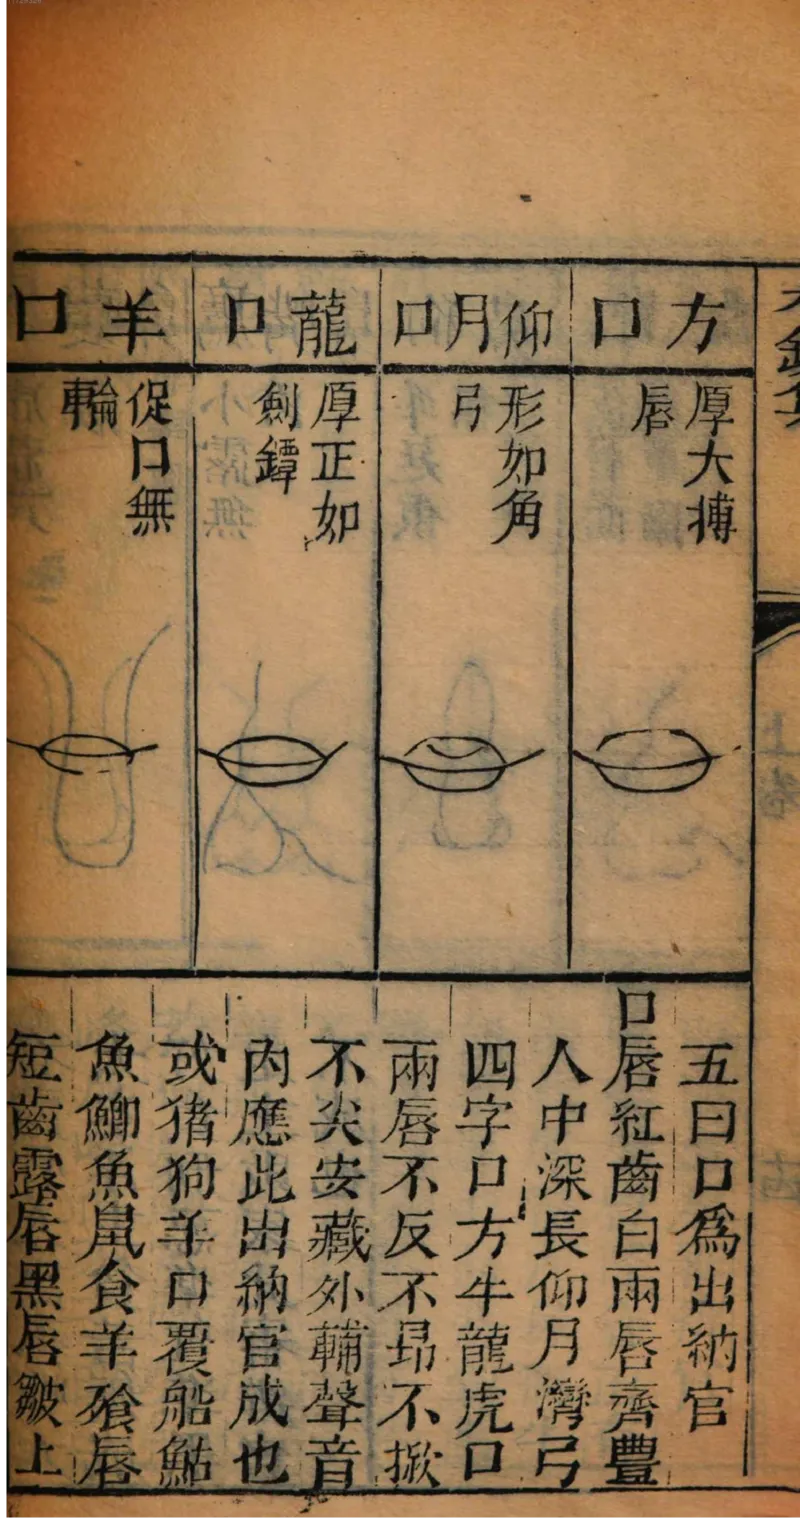 方口
厚大摶
唇
仰月口
形如角
弓
龍口
厚正如
劍鐔
羊口
促口無
輪
五曰口為出納官
口唇紅齒白兩唇齊豐
人中深長仰月灣弓
四字口方牛龍虎口
兩唇不反不昂不掀
不尖安藏外輔聲音
內應此出納官成也
或猪狗羊口覆船鮎
魚鯽魚鼠食羊飱唇
短齒露唇黑唇皺上